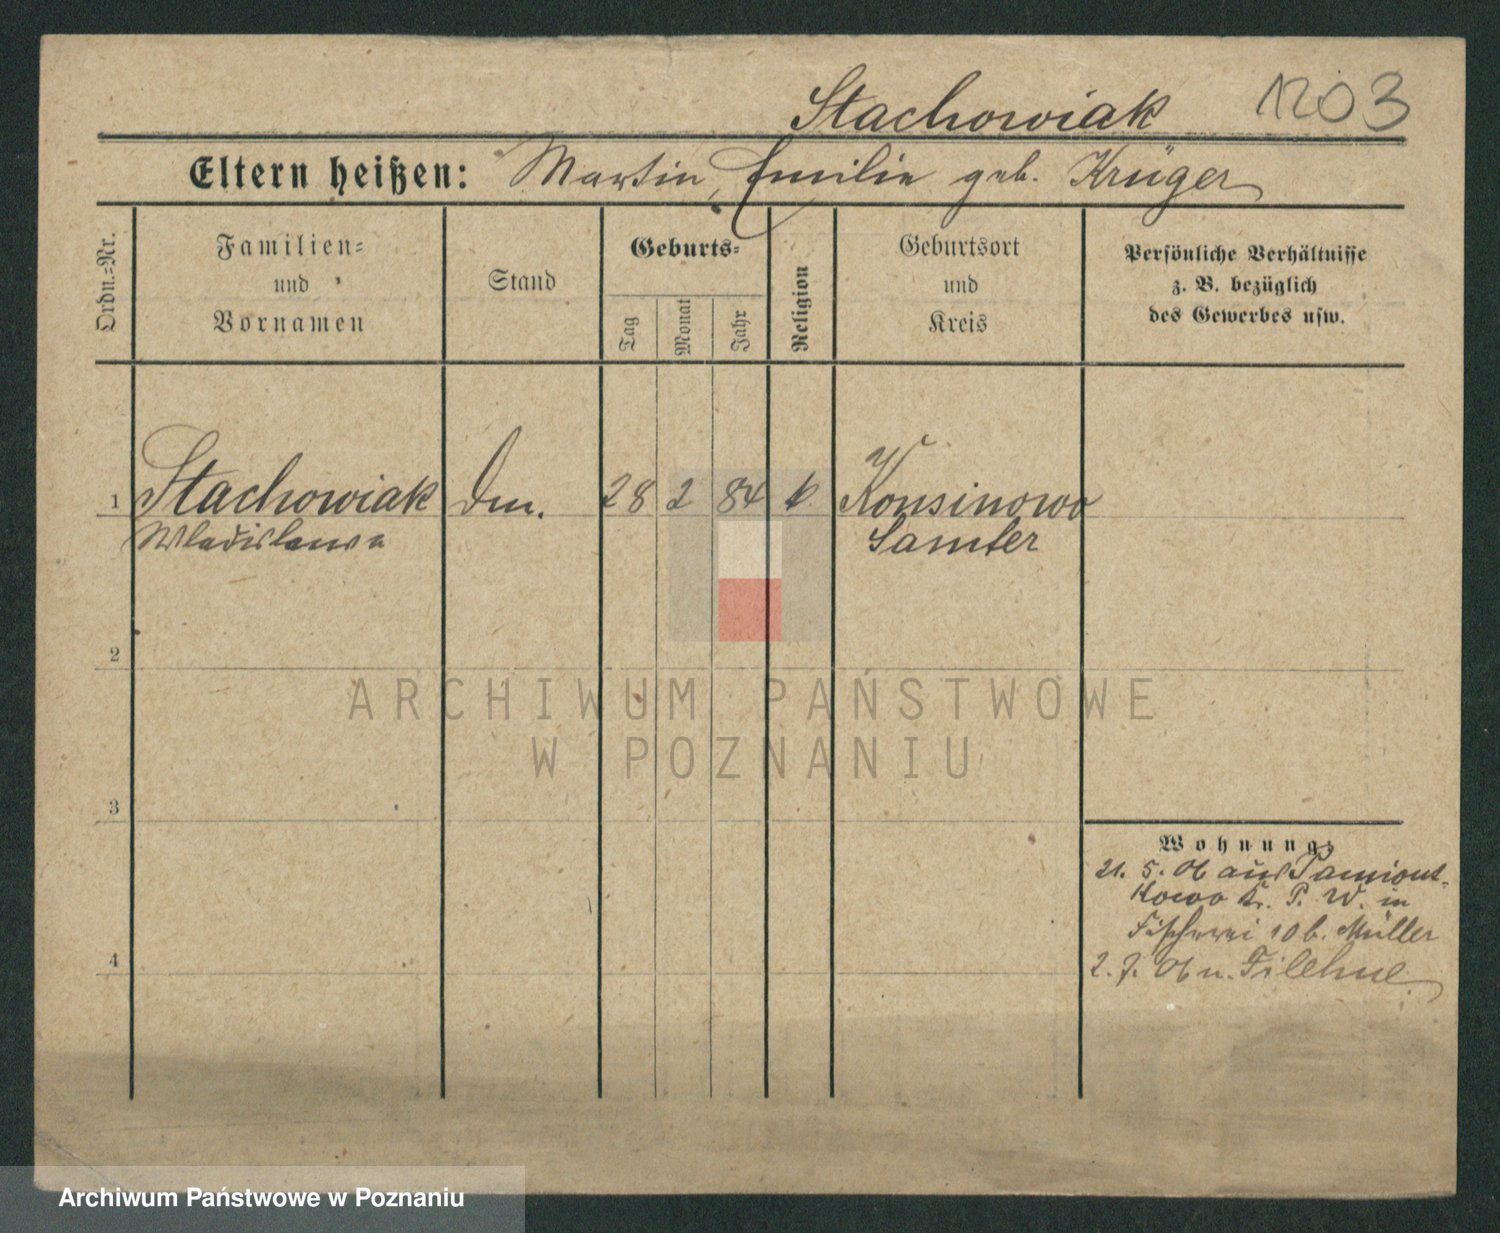 Stachowiak 1203
Eltern heißen: Martin, Emilie geb. Krüger
Ordn.-Nr.
Familien-
und
Vornamen
Stand
Geburts-
Tag
Monat
Jahr
Religion
Geburtsort
und
Kreis
Persönliche Verhältnisse
z. B. bezüglich
des Gewerbes usw.
1 Stachowiak 28 2 84 k. Konsinowo
Wladislawa Samter
2
3
4
Wohnung:
21. 5. 06 aus
kowo Kr. P. W. in
Fischerei 10 b. Müller
2. 7. 06 n. Filehne
ARCHIWUM PAŃSTWOWE
W POZNANIU
Archiwum Państwowe w Poznaniu